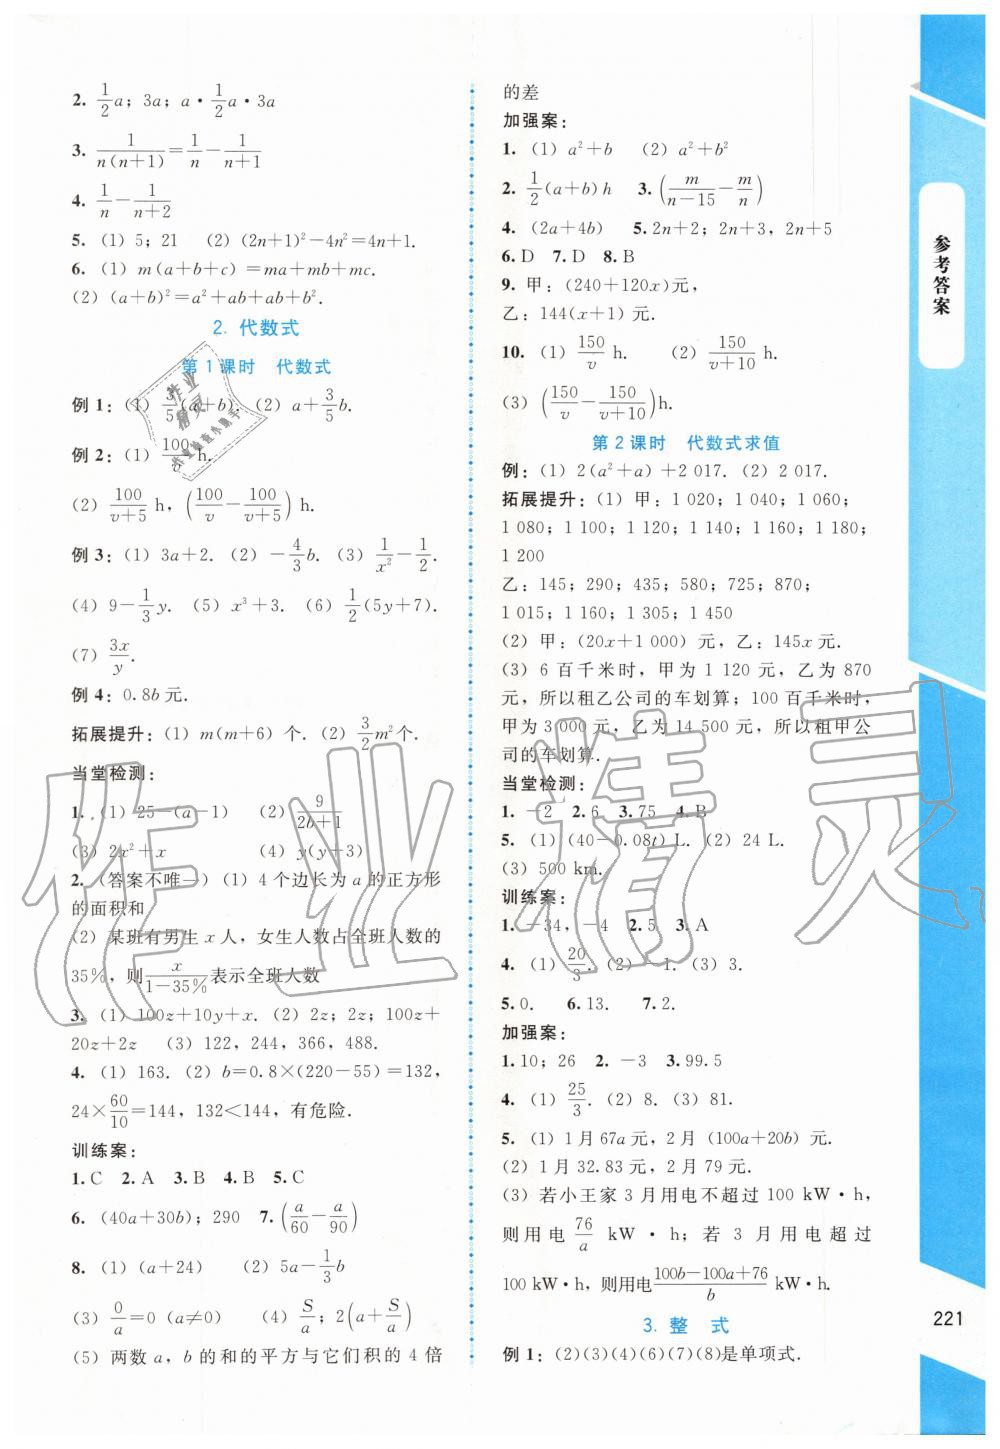 2. 1/2 a；3a；a·1/2 a·3a
3. 1/(n(n+1))=1/n−1/(n+1)
4. 1/n−1/(n+2)
5. (1) 5；21  (2) (2n+1)²−4n²=4n+1.
6. (1) m(a+b+c)=ma+mb+mc.
(2) (a+b)²=a²+ab+ab+b².
2. 代数式
第1课时 代数式
例1：(1) 3/5(a+b)；(2) a+3/5 b.
例2：(1) 100/v h.
(2) 100/(v+5) h，(100/v−100/(v+5)) h.
例3：(1) 3a+2. (2) −4/3 b. (3) 1/x²−1/2.
(4) 9−1/3 y. (5) x³+3. (6) 1/2(5y+7).
(7) 3x/y.
例4：0.8b元.
拓展提升：(1) m(m+6) 个. (2) 3/2 m²个.
当堂检测：
1. (1) 25−(a−1)  (2) 9/(2b+1)
(3) 2x²+x  (4) y(y+3)
2. (答案不唯一) (1) 4个边长为a的正方形
的面积和
(2) 某班有男生x人，女生人数占全班人数的
35%，则x/(1−35%)表示全班人数
3. (1) 100z+10y+x. (2) 2z；2z；100z+
20z+2z  (3) 122，244，366，488.
4. (1) 163. (2) b=0.8×(220−55)=132，
24×60/10=144，132<144，有危险.
训练案：
1. C  2. A  3. B  4. B  5. C
6. (40a+30b)；290  7. (a/60−a/90)
8. (1) (a+24)  (2) 5a−1/3 b
(3) 0/a=0 (a≠0)  (4) S/a；2(a+S/a)
(5) 两数a，b的和的平方与它们积的4倍
的差
加强案：
1. (1) a²+b  (2) a²+b²
2. 1/2(a+b)h  3. (m/(n−15)−m/n)
4. (2a+4b)  5. 2n+2；2n+3，2n+5
6. D  7. D  8. B
9. 甲：(240+120x)元，
乙：144(x+1) 元.
10. (1) 150/v h.  (2) 150/(v+10) h.
(3) (150/v−150/(v+10))h.
第2课时 代数式求值
例：(1) 2(a²+a)+2 017. (2) 2 017.
拓展提升：(1) 甲：1 020；1 040；1 060；
1 080；1 100；1 120；1 140；1 160；1 180；
1 200
乙：145；290；435；580；725；870；
1 015；1 160；1 305；1 450
(2) 甲：(20x+1 000) 元，乙：145x元.
(3) 6百千米时，甲为1 120元，乙为870
元，所以租乙公司的车划算；100百千米时，
甲为3 000元，乙为14 500元，所以租甲公
司的车划算.
当堂检测：
1. −2  2. 6  3. 75  4. B
5. (1) (40−0.08t) L. (2) 24 L.
(3) 500 km.
训练案：
1. −34，−4  2. 5  3. A
4. (1) 20/3. (2) −1. (3) 3.
5. 0.  6. 13.  7. 2.
加强案：
1. 10；26  2. −3  3. 99.5
4. (1) 25/3. (2) 8. (3) 81.
5. (1) 1月67a元，2月 (100a+20b) 元.
(2) 1月32.83元，2月79元.
(3) 若小王家3月用电不超过100 kW·h，
则用电76/a kW·h；若3月用电超过
100 kW·h，则用电(100b−100a+76)/b kW·h.
3. 整 式
例1：(2)(3)(4)(6)(7)(8)是单项式.
参考答案
221
作业精灵